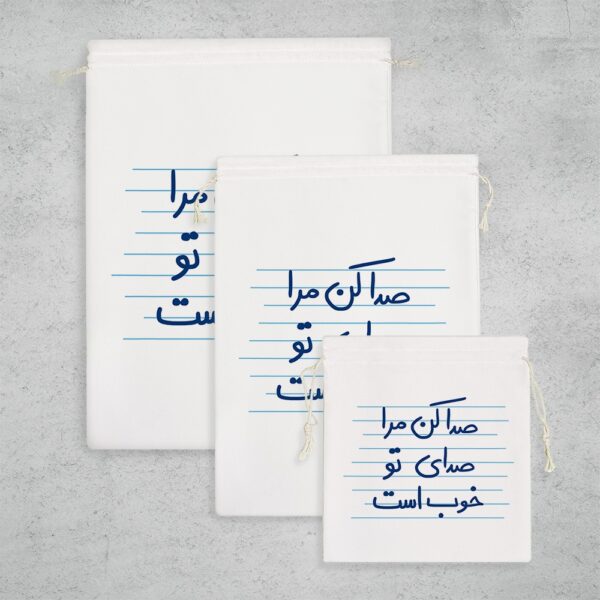 مرا
تو
صدا کن مرا
تو
صدا کن مرا
صدای تو
خوب است